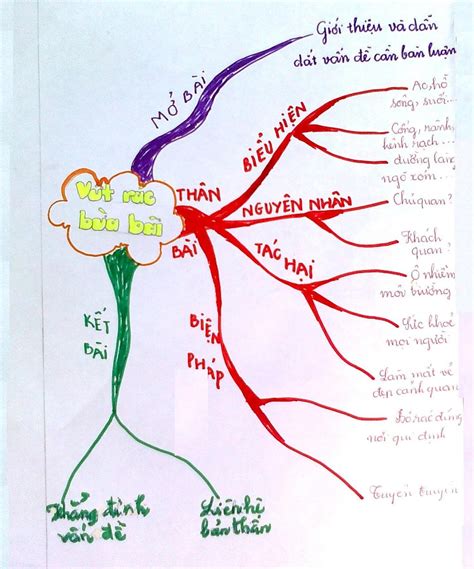 Giới thiệu và dẫn
dắt vấn đề cần bàn luận
MỞ BÀI
Vứt rác
bừa bãi
THÂN
BÀI
BIỂU HIỆN
Ao, hồ
sông, suối...
Cống, rãnh,
kênh rạch...
đường làng
ngõ xóm...
NGUYÊN NHÂN
Chủ quan?
Khách
quan?
TÁC HẠI
Ô nhiễm
môi trường
Sức khoẻ
mọi người
Làm mất vẻ
đẹp cảnh quan
BIỆN
PHÁP
Đổ rác đúng
nơi qui định
Tuyên truyền
KẾT
BÀI
Khẳng định
vấn đề
Liên hệ
bản thân